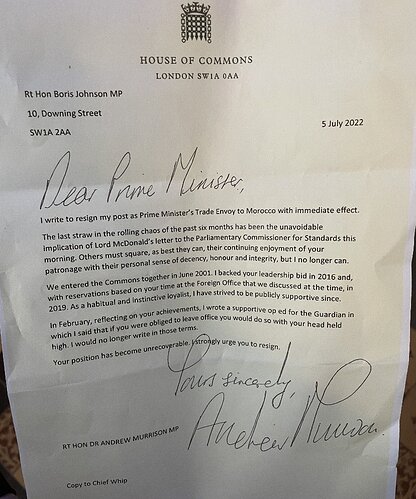 HOUSE OF COMMONS
LONDON SW1A 0AA
Rt Hon Boris Johnson MP
10, Downing Street
SW1A 2AA
5 July 2022
Dear Prime Minister,
I write to resign my post as Prime Minister's Trade Envoy to Morocco with immediate effect.
The last straw in the rolling chaos of the past six months has been the unavoidable
implication of Lord McDonald's letter to the Parliamentary Commissioner for Standards this
morning. Others must square, as best they can, their continuing enjoyment of your
patronage with their personal sense of decency, honour and integrity, but I no longer can.
We entered the Commons together in June 2001. I backed your leadership bid in 2016 and,
with reservations based on your time at the Foreign Office that we discussed at the time, in
2019. As a habitual and instinctive loyalist, I have strived to be publicly supportive since.
In February, reflecting on your achievements, I wrote a supportive op ed for the Guardian in
which I said that if you were obliged to leave office you would do so with your head held
high. I would no longer write in those terms.
Your position has become unrecoverable. I strongly urge you to resign.
Yours sincerely,
Andrew Murrison.
RT HON DR ANDREW MURRISON MP
Copy to Chief Whip